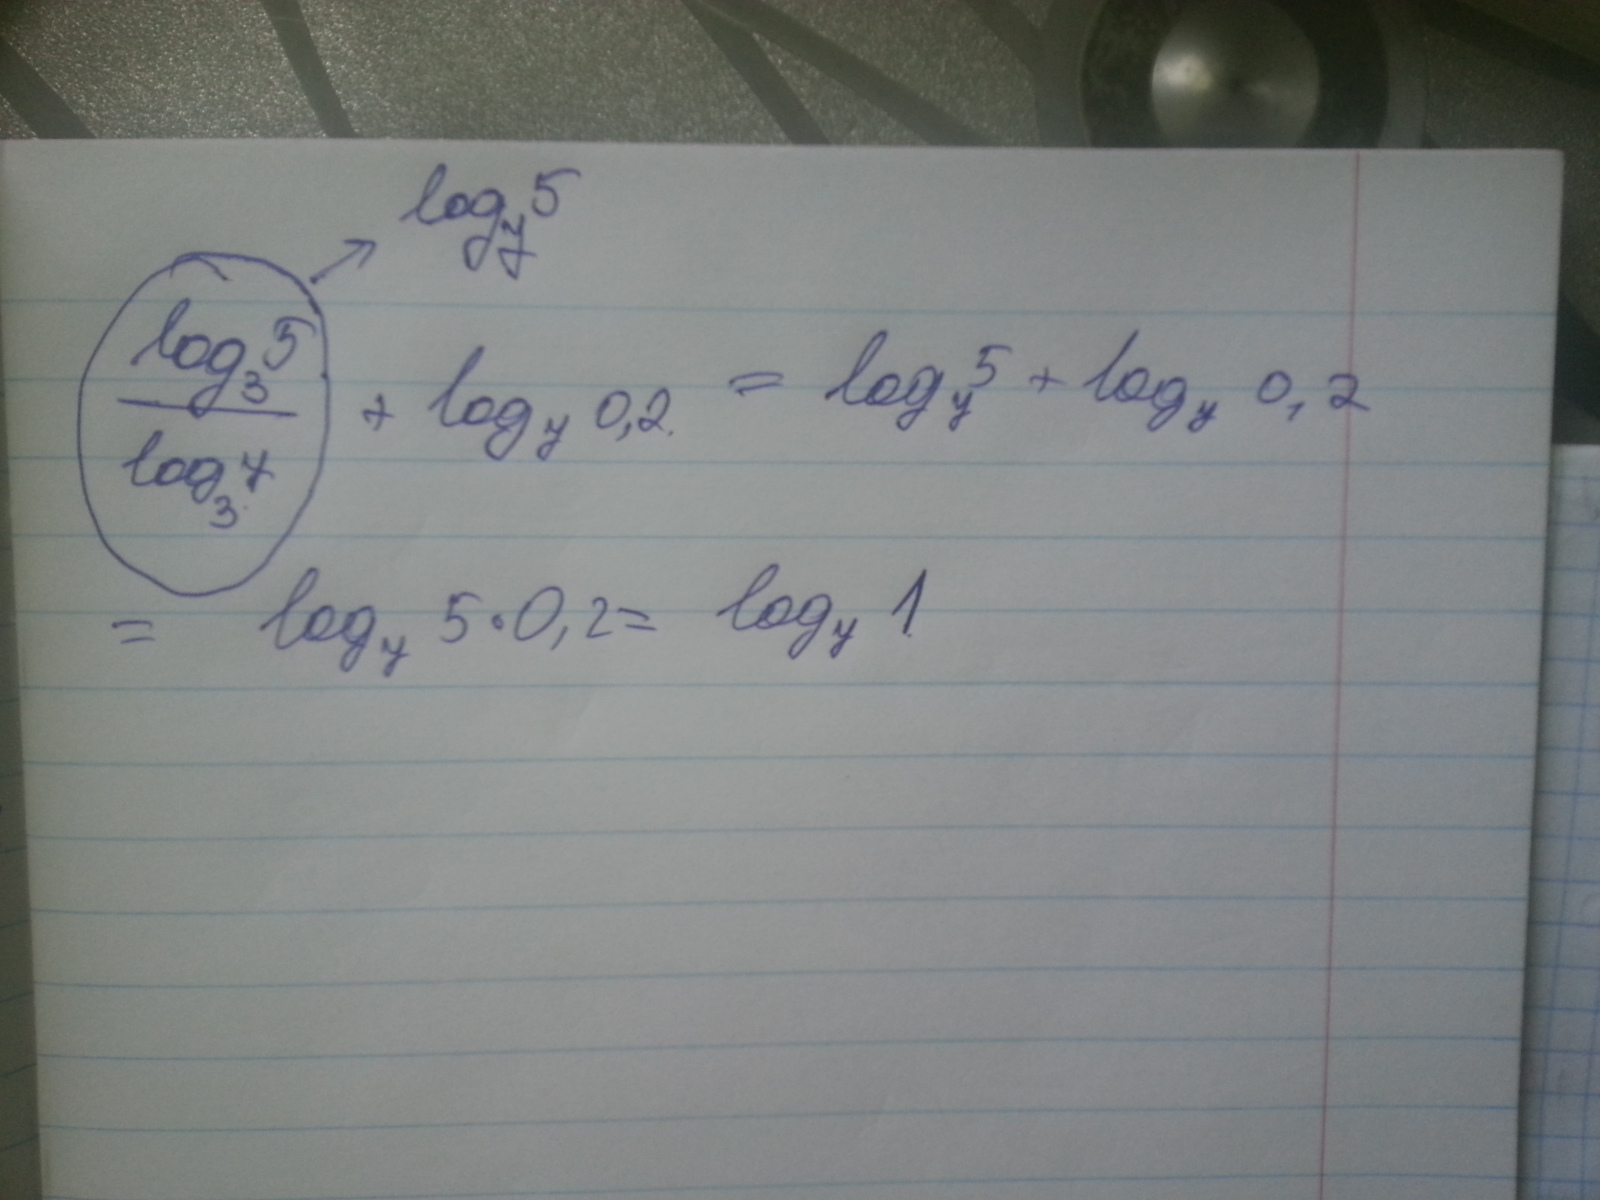 log_y 5
log_3 5 / log_3 y + log_y 0,2 = log_y 5 + log_y 0,2
= log_y 5·0,2 = log_y 1